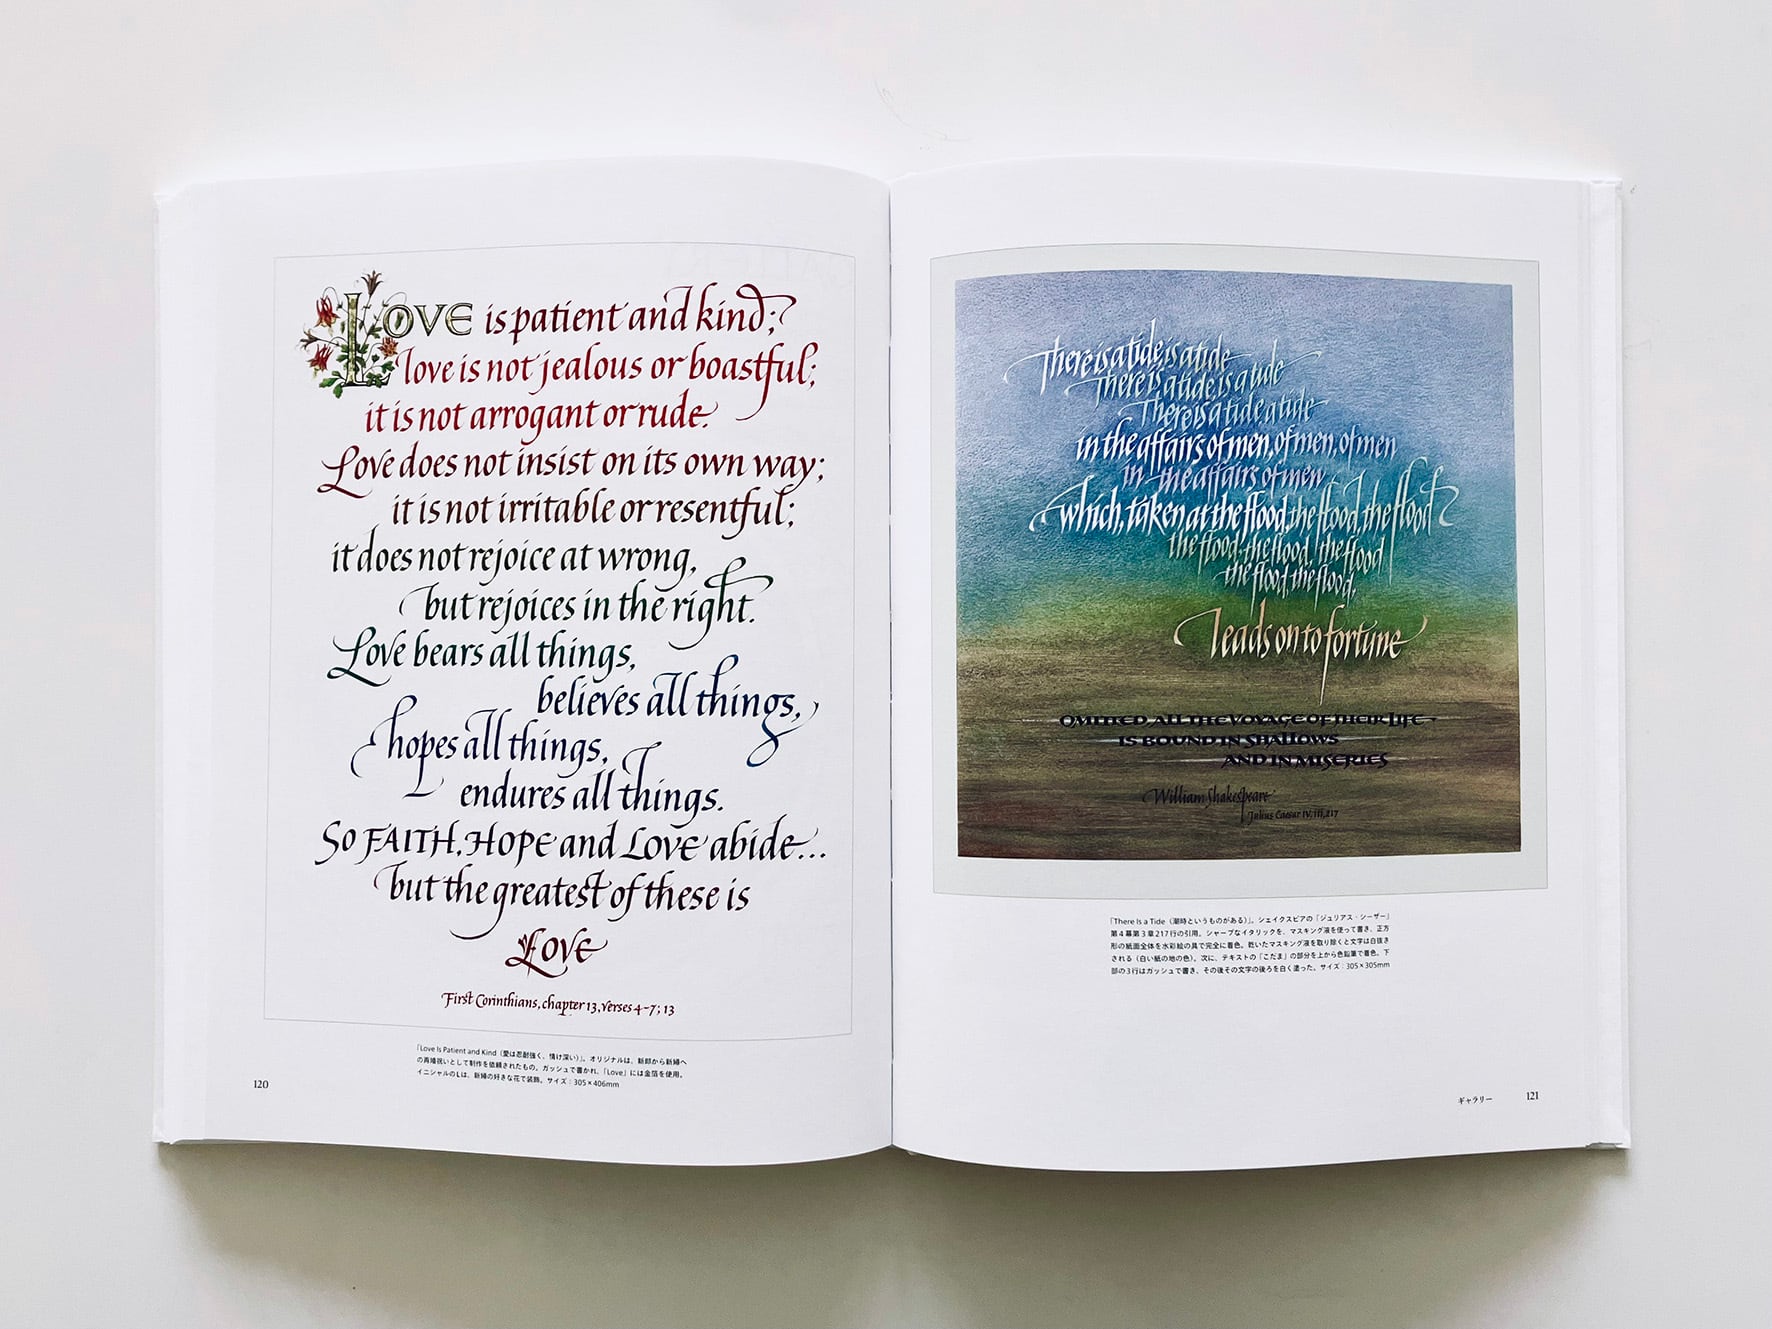 LOVE is patient and kind;
love is not jealous or boastful;
it is not arrogant or rude.
Love does not insist on its own way;
it is not irritable or resentful;
it does not rejoice at wrong,
but rejoices in the right.
Love bears all things,
believes all things,
hopes all things,
endures all things.
So FAITH, HOPE and LOVE abide...
but the greatest of these is
LOVE
First Corinthians, chapter 13, verses 4-7; 13
「Love Is Patient and Kind（愛は忍耐強く、情け深い）」。オリジナルは、新郎から新婦へ
の再婚祝いとして制作を依頼されたもの。ガッシュで書かれ、「Love」には金箔を使用。
イニシャルのLは、新婦の好きな花で装飾。サイズ：305×406mm
120
There is a tide, is a tide
There is a tide, is a tide
There is a tide a tide
in the affairs of men, of men, of men
in the affairs of men
which, taken at the flood, the flood, the flood
the flood, the flood, the flood
the flood, the flood,
leads on to fortune
OMITTED, ALL THE VOYAGE OF THEIR LIFE
IS BOUND IN SHALLOWS
AND IN MISERIES
William Shakespeare
Julius Caesar IV, iii, 217
「There Is a Tide（潮時というものがある）」。シェイクスピアの「ジュリアス・シーザー」
第4幕第3章217行の引用。シャープなイタリックを、マスキング液を使って書き、正方
形の紙面全体を水彩絵の具で完全に着色。乾いたマスキング液を取り除くと文字は白抜き
される（白い紙の地の色）。次に、テキストの「こだま」の部分を上から色鉛筆で着色。下
部の3行はガッシュで書き、その後その文字の後ろを白く塗った。サイズ：305×305mm
ギャラリー 121